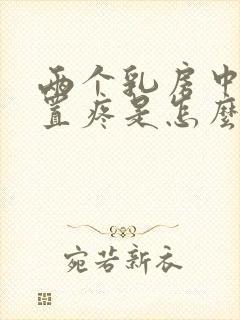 两个乳房中
置疼是怎麽
宛若新衣